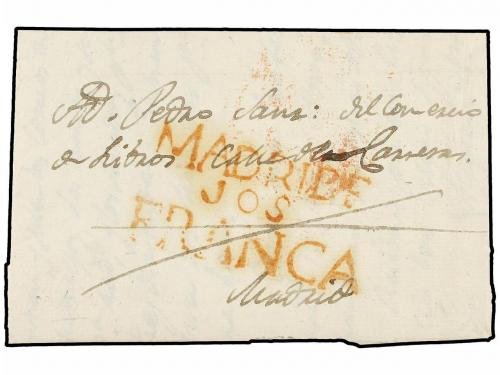 A D. Pedro Sanz: del Comercio
de Libros Calle de las Carretas.
MADRIDE
JOS
FRANCA
Madrid